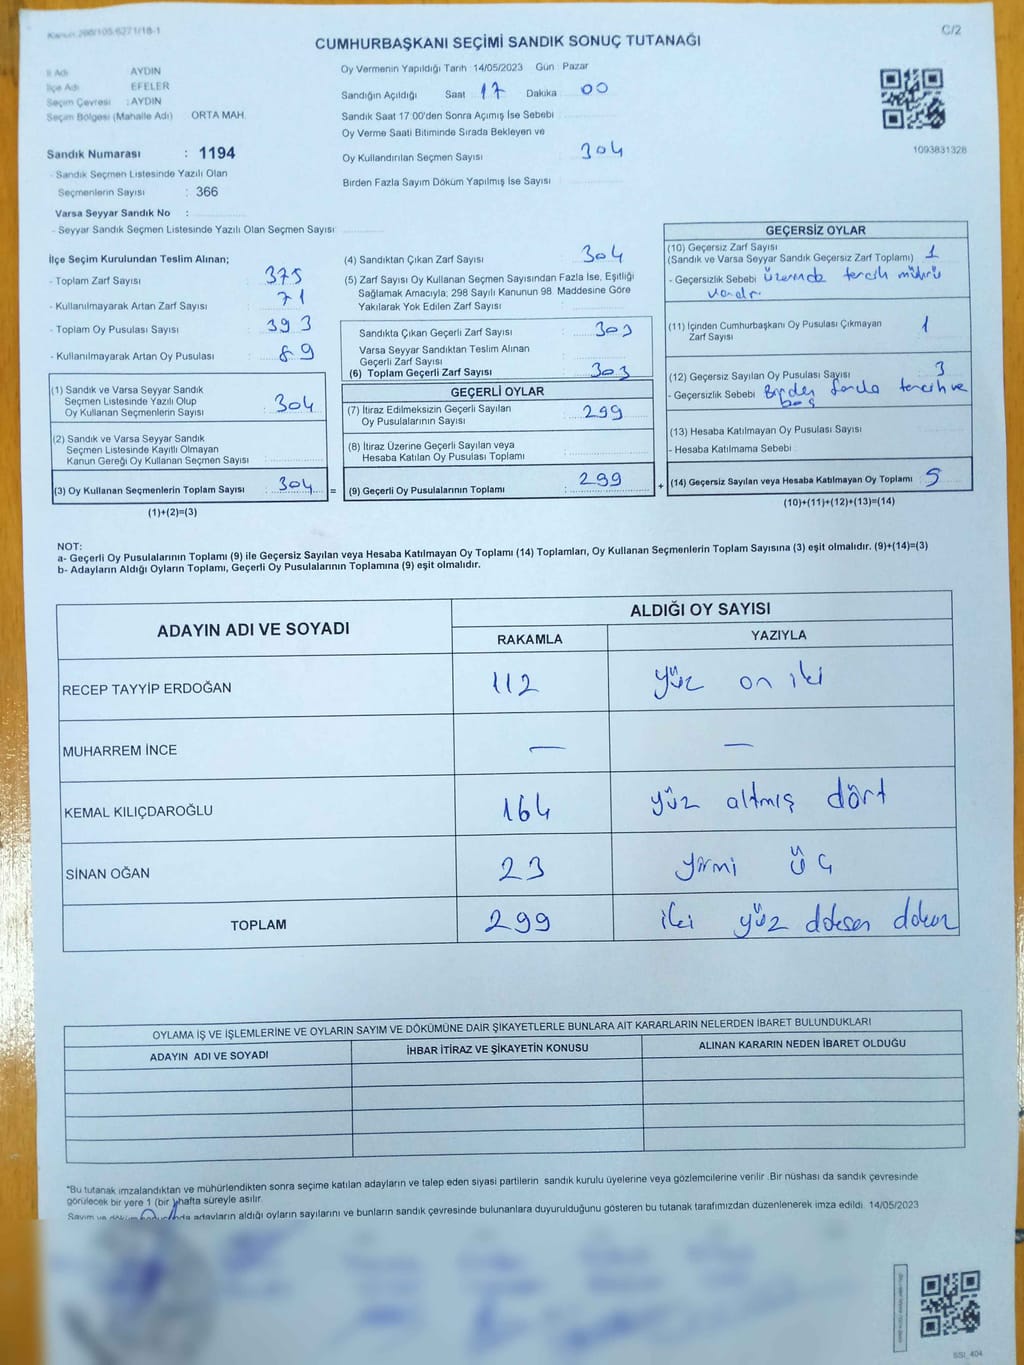 Kanun 298/105,6271/18-1
C/2
CUMHURBAŞKANI SEÇİMİ SANDIK SONUÇ TUTANAĞI
İl Adı AYDIN
İlçe Adı EFELER
Seçim Çevresi : AYDIN
Seçim Bölgesi (Mahalle Adı) ORTA MAH.
Sandık Numarası : 1194
- Sandık Seçmen Listesinde Yazılı Olan
Seçmenlerin Sayısı : 366
Varsa Seyyar Sandık No :
- Seyyar Sandık Seçmen Listesinde Yazılı Olan Seçmen Sayısı
Oy Vermenin Yapıldığı Tarih 14/05/2023 Gün Pazar
Sandığın Açıldığı Saat 17 Dakika 00
Sandık Saat 17 00'den Sonra Açımış İse Sebebi
Oy Verme Saati Bitiminde Sırada Bekleyen ve
Oy Kullandırılan Seçmen Sayısı 304
Birden Fazla Sayım Döküm Yapılmış İse Sayısı
1093831328
İlçe Seçim Kurulundan Teslim Alınan;
- Toplam Zarf Sayısı : 375
- Kullanılmayarak Artan Zarf Sayısı : 71
- Toplam Oy Pusulası Sayısı : 393
- Kullanılmayarak Artan Oy Pusulası : 89
(1) Sandık ve Varsa Seyyar Sandık
Seçmen Listesinde Yazılı Olup
Oy Kullanan Seçmenlerin Sayısı : 304
(2) Sandık ve Varsa Seyyar Sandık
Seçmen Listesinde Kayıtlı Olmayan
Kanun Gereği Oy Kullanan Seçmen Sayısı
(3) Oy Kullanan Seçmenlerin Toplam Sayısı : 304 =
(1)+(2)=(3)
(4) Sandıktan Çıkan Zarf Sayısı : 304
(5) Zarf Sayısı Oy Kullanan Seçmen Sayısından Fazla İse, Eşitliği
Sağlamak Amacıyla; 298 Sayılı Kanunun 98. Maddesine Göre
Yakılarak Yok Edilen Zarf Sayısı
Sandıkta Çıkan Geçerli Zarf Sayısı : 303
Varsa Seyyar Sandıktan Teslim Alınan
Geçerli Zarf Sayısı
(6) Toplam Geçerli Zarf Sayısı : 303
GEÇERLİ OYLAR
(7) İtiraz Edilmeksizin Geçerli Sayılan
Oy Pusulalarının Sayısı : 299
(8) İtiraz Üzerine Geçerli Sayılan veya
Hesaba Katılan Oy Pusulası Toplamı
(9) Geçerli Oy Pusulalarının Toplamı : 299 +
GEÇERSİZ OYLAR
(10) Geçersiz Zarf Sayısı
(Sandık ve Varsa Seyyar Sandık Geçersiz Zarf Toplamı) : 1
- Geçersizlik Sebebi : üzerinde tercih mührü
vardır
(11) İçinden Cumhurbaşkanı Oy Pusulası Çıkmayan
Zarf Sayısı 1
(12) Geçersiz Sayılan Oy Pusulası Sayısı : 3
- Geçersizlik Sebebi Birden fazla tercih ve
boş
(13) Hesaba Katılmayan Oy Pusulası Sayısı
- Hesaba Katılmama Sebebi
(14) Geçersiz Sayılan veya Hesaba Katılmayan Oy Toplamı : 5
(10)+(11)+(12)+(13)=(14)
NOT:
a- Geçerli Oy Pusulalarının Toplamı (9) ile Geçersiz Sayılan veya Hesaba Katılmayan Oy Toplamı (14) Toplamları, Oy Kullanan Seçmenlerin Toplam Sayısına (3) eşit olmalıdır. (9)+(14)=(3)
b- Adayların Aldığı Oyların Toplamı, Geçerli Oy Pusulalarının Toplamına (9) eşit olmalıdır.
ADAYIN ADI VE SOYADI ALDIĞI OY SAYISI
RAKAMLA YAZIYLA
RECEP TAYYİP ERDOĞAN 112 yüz on iki
MUHARREM İNCE — —
KEMAL KILIÇDAROĞLU 164 yüz altmış dört
SİNAN OĞAN 23 yirmi üç
TOPLAM 299 iki yüz doksan dokuz
OYLAMA İŞ VE İŞLEMLERİNE VE OYLARIN SAYIM VE DÖKÜMÜNE DAİR ŞİKAYETLERLE BUNLARA AİT KARARLARIN NELERDEN İBARET BULUNDUKLARI
ADAYIN ADI VE SOYADI İHBAR İTİRAZ VE ŞİKAYETİN KONUSU ALINAN KARARIN NEDEN İBARET OLDUĞU
*Bu tutanak imzalandıktan ve mühürlendikten sonra seçime katılan adayların ve talep eden siyasi partilerin sandık kurulu üyelerine veya gözlemcilerine verilir. Bir nüshası da sandık çevresinde
görülecek bir yere 1 (bir) hafta süreyle asılır.
Sayım ve adayların aldığı oyların sayılarını ve bunların sandık çevresinde bulunanlara duyurulduğunu gösteren bu tutanak tarafımızdan düzenlenerek imza edildi. 14/05/2023
SSI_404